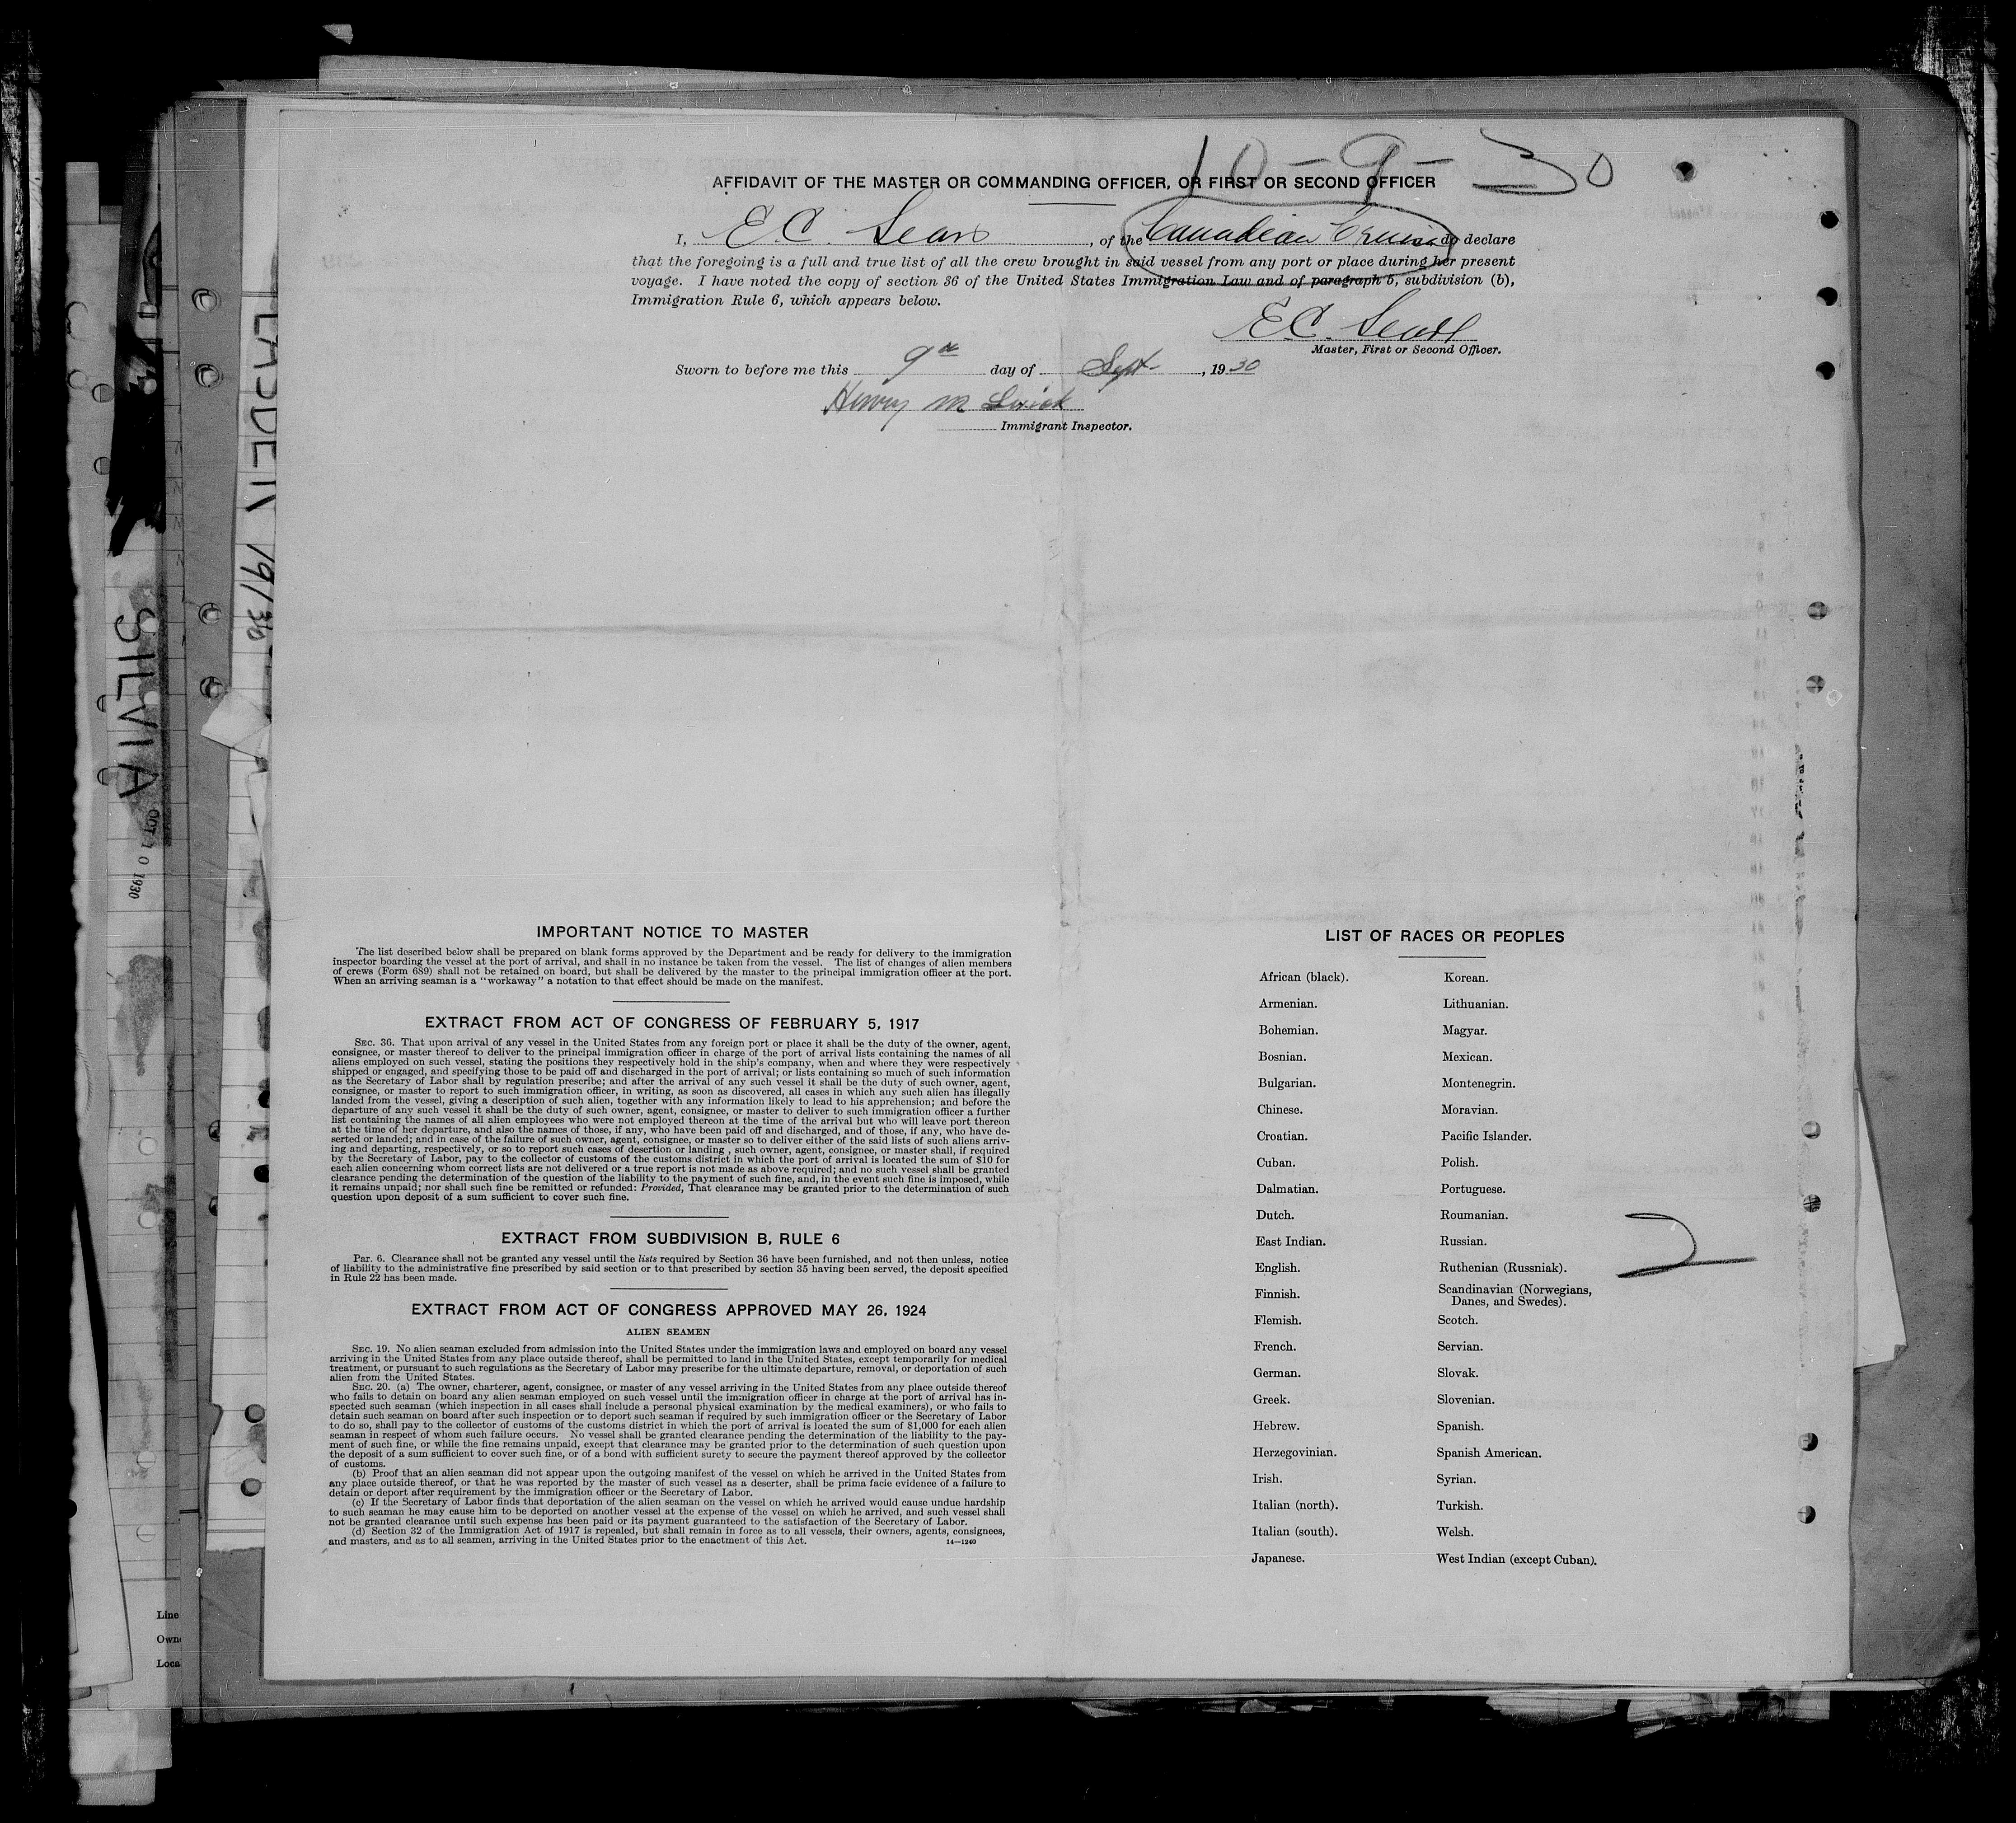 10-9-30
AFFIDAVIT OF THE MASTER OR COMMANDING OFFICER, OR FIRST OR SECOND OFFICER
I, E.C. Sears, of the Canadian Cruiser do declare
that the foregoing is a full and true list of all the crew brought in said vessel from any port or place during her present
voyage. I have noted the copy of section 36 of the United States Immigration Law and of paragraph b, subdivision (b),
Immigration Rule 6, which appears below.
E.C. Sears
Master, First or Second Officer.
Sworn to before me this 9th day of Sept-, 1930
Henry M
Immigrant Inspector.
IMPORTANT NOTICE TO MASTER
The list described below shall be prepared on blank forms approved by the Department and be ready for delivery to the immigration
inspector boarding the vessel at the port of arrival, and shall in no instance be taken from the vessel. The list of changes of alien members
of crews (Form 689) shall not be retained on board, but shall be delivered by the master to the principal immigration officer at the port.
When an arriving seaman is a "workaway" a notation to that effect should be made on the manifest.
EXTRACT FROM ACT OF CONGRESS OF FEBRUARY 5, 1917
SEC. 36. That upon arrival of any vessel in the United States from any foreign port or place it shall be the duty of the owner, agent,
consignee, or master thereof to deliver to the principal immigration officer in charge of the port of arrival lists containing the names of all
aliens employed on such vessel, stating the positions they respectively hold in the ship's company, when and where they were respectively
shipped or engaged, and specifying those to be paid off and discharged in the port of arrival; or lists containing so much of such information
as the Secretary of Labor shall by regulation prescribe; and after the arrival of any such vessel it shall be the duty of such owner, agent,
consignee, or master to report to such immigration officer, in writing, as soon as discovered, all cases in which any such alien has illegally
landed from the vessel, giving a description of such alien, together with any information likely to lead to his apprehension; and before the
departure of any such vessel it shall be the duty of such owner, agent, consignee, or master to deliver to such immigration officer a further
list containing the names of all alien employees who were not employed thereon at the time of the arrival but who will leave port thereon
at the time of her departure, and also the names of those, if any, who have been paid off and discharged, and of those, if any, who have de-
serted or landed; and in case of the failure of such owner, agent, consignee, or master so to deliver either of the said lists of such aliens arriv-
ing and departing, respectively, or so to report such cases of desertion or landing , such owner, agent, consignee, or master shall, if required
by the Secretary of Labor, pay to the collector of customs of the customs district in which the port of arrival is located the sum of $10 for
each alien concerning whom correct lists are not delivered or a true report is not made as above required; and no such vessel shall be granted
clearance pending the determination of the question of the liability to the payment of such fine, and, in the event such fine is imposed, while
it remains unpaid; nor shall such fine be remitted or refunded: Provided, That clearance may be granted prior to the determination of such
question upon deposit of a sum sufficient to cover such fine.
EXTRACT FROM SUBDIVISION B, RULE 6
Par. 6. Clearance shall not be granted any vessel until the lists required by Section 36 have been furnished, and not then unless, notice
of liability to the administrative fine prescribed by said section or to that prescribed by section 35 having been served, the deposit specified
in Rule 22 has been made.
EXTRACT FROM ACT OF CONGRESS APPROVED MAY 26, 1924
ALIEN SEAMEN
SEC. 19. No alien seaman excluded from admission into the United States under the immigration laws and employed on board any vessel
arriving in the United States from any place outside thereof, shall be permitted to land in the United States, except temporarily for medical
treatment, or pursuant to such regulations as the Secretary of Labor may prescribe for the ultimate departure, removal, or deportation of such
alien from the United States.
SEC. 20. (a) The owner, charterer, agent, consignee, or master of any vessel arriving in the United States from any place outside thereof
who fails to detain on board any alien seaman employed on such vessel until the immigration officer in charge at the port of arrival has in-
spected such seaman (which inspection in all cases shall include a personal physical examination by the medical examiners), or who fails to
detain such seaman on board after such inspection or to deport such seaman if required by such immigration officer or the Secretary of Labor
to do so, shall pay to the collector of customs of the customs district in which the port of arrival is located the sum of $1,000 for each alien
seaman in respect of whom such failure occurs. No vessel shall be granted clearance pending the determination of the liability to the pay-
ment of such fine, or while the fine remains unpaid, except that clearance may be granted prior to the determination of such question upon
the deposit of a sum sufficient to cover such fine, or of a bond with sufficient surety to secure the payment thereof approved by the collector
of customs.
(b) Proof that an alien seaman did not appear upon the outgoing manifest of the vessel on which he arrived in the United States from
any place outside thereof, or that he was reported by the master of such vessel as a deserter, shall be prima facie evidence of a failure to
detain or deport after requirement by the immigration officer or the Secretary of Labor.
(c) If the Secretary of Labor finds that deportation of the alien seaman on the vessel on which he arrived would cause undue hardship
to such seaman he may cause him to be deported on another vessel at the expense of the vessel on which he arrived, and such vessel shall
not be granted clearance until such expense has been paid or its payment guaranteed to the satisfaction of the Secretary of Labor.
(d) Section 32 of the Immigration Act of 1917 is repealed, but shall remain in force as to all vessels, their owners, agents, consignees,
and masters, and as to all seamen, arriving in the United States prior to the enactment of this Act.
14—1240
LIST OF RACES OR PEOPLES
African (black). Korean.
Armenian. Lithuanian.
Bohemian. Magyar.
Bosnian. Mexican.
Bulgarian. Montenegrin.
Chinese. Moravian.
Croatian. Pacific Islander.
Cuban. Polish.
Dalmatian. Portuguese.
Dutch. Roumanian.
East Indian. Russian.
English. Ruthenian (Russniak).
Finnish. Scandinavian (Norwegians,
Danes, and Swedes).
Flemish. Scotch.
French. Servian.
German. Slovak.
Greek. Slovenian.
Hebrew. Spanish.
Herzegovinian. Spanish American.
Irish. Syrian.
Italian (north). Turkish.
Italian (south). Welsh.
Japanese. West Indian (except Cuban).
2
SILVIA
OCT 10 1930
Line
Own
Loca